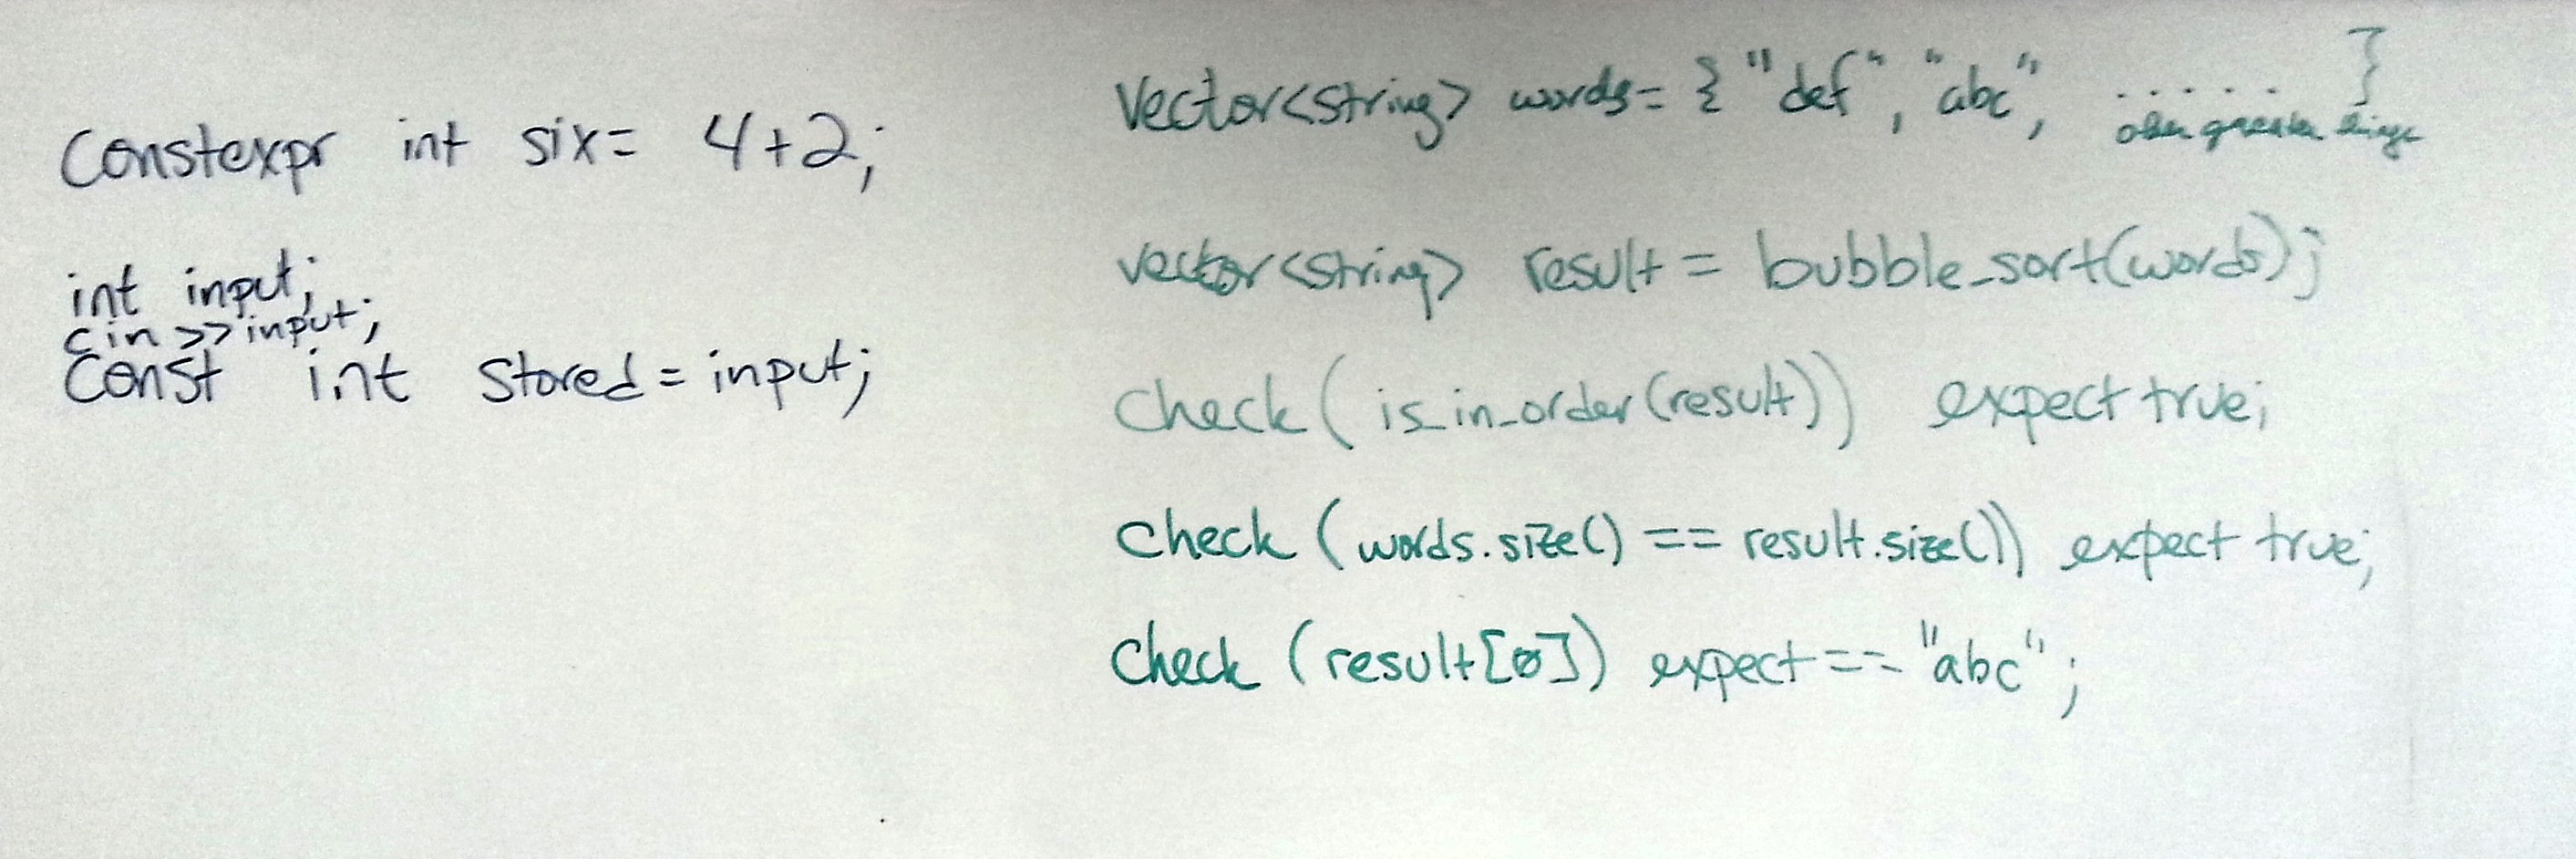 Constexpr int six= 4+2;
int input;
cin >> input;
Const int stored = input;
vector<string> words= { "def", "abc", ...... }
other greater things
vector<string> result = bubble_sort(words);
check (is_in_order(result)) expect true;
check (words.size() == result.size()) expect true;
check (result[0]) expect == "abc";